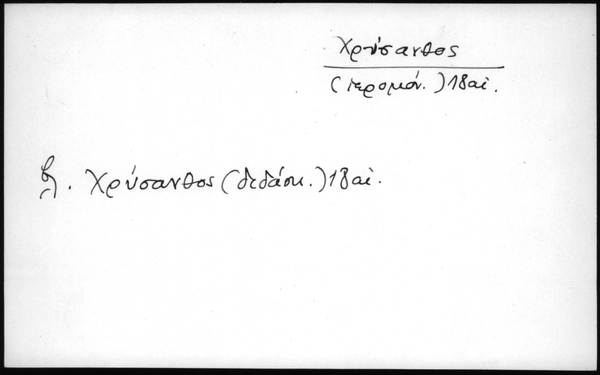 Χρύσανθος
(ιερομόν.) 18 αἰ.
βλ. Χρύσανθος (διδάσκ.) 18 αἰ.